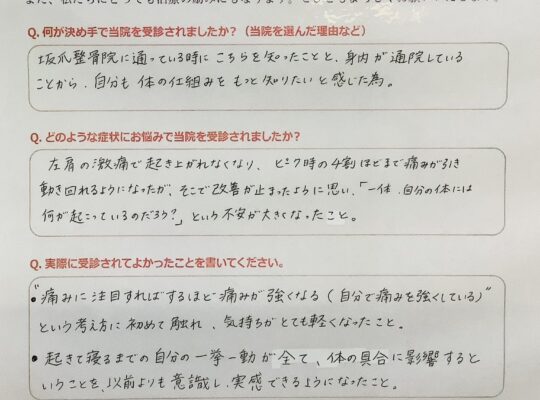 Q. 何が決め手で当院を受診されましたか？（当院を選んだ理由など）
坂爪整骨院に通っている時にこちらを知ったことと、身内が通院している
ことから、自分も体の仕組みをもっと知りたいと感じた為。
Q. どのような症状にお悩みで当院を受診されましたか？
左肩の激痛で起き上がれなくなり、ピーク時の4割ほどまで痛みが引き
動き回れるようになったが、そこで改善が止まったように思い、「一体、自分の体には
何が起こっているのだろう？」という不安が大きくなったこと。
Q. 実際に受診されてよかったことを書いてください。
•"痛みに注目すればするほど痛みが強くなる（自分で痛みを強くしている）"
という考え方に初めて触れ、気持ちがとても軽くなったこと。
• 起きて寝るまでの自分の一挙一動が全て、体の具合に影響すると
いうことを、以前よりも意識し、実感できるようになったこと。